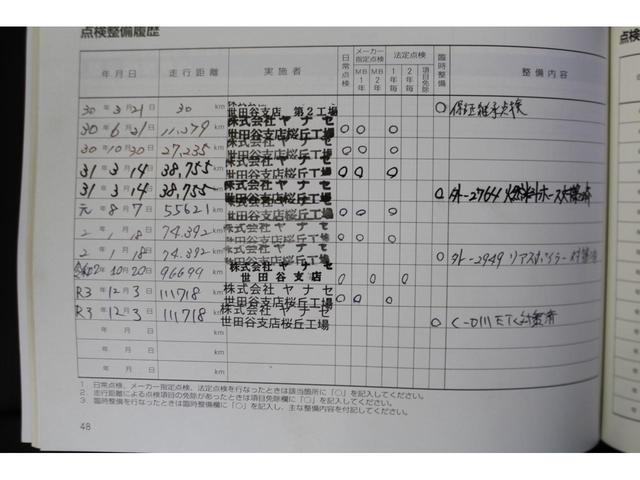 点検整備履歴
年月日 走行距離 実施者 日常点検 メーカー指定点検 MB1年 MB2年 法定点検 1年毎 2年毎 項目免除 臨時整備 整備内容
30年3月21日 30km 世田谷支店 第2工場 ○ 保証継承点検
30年6月21日 11,379km 株式会社ヤナセ 世田谷支店桜丘工場 ○ ○ ○
30年10月30日 27,235km 株式会社ヤナセ 世田谷支店桜丘工場 ○ ○ ○
31年3月14日 38,755km 株式会社ヤナセ 世田谷支店桜丘工場 ○ ○ ○
31年3月14日 38,755km 株式会社ヤナセ 世田谷支店桜丘工場 ○ 外-2764 燃料ホース
元年8月7日 55621km 株式会社ヤナセ 世田谷支店桜丘工場 ○ ○ ○
2年1月18日 74.392km 株式会社ヤナセ 世田谷支店桜丘工場 ○ ○ ○
2年1月18日 74.392km 株式会社ヤナセ 世田谷支店桜丘工場 ○ 外-2949 リアスポイラー
令和2年10月20日 96699km 株式会社ヤナセ 世田谷支店 ○ ○ ○
R3年12月3日 111718km 株式会社ヤナセ 世田谷支店桜丘工場 ○ ○ ○
R3年12月3日 111718km 株式会社ヤナセ 世田谷支店桜丘工場 ○
年月日 km
年月日 km
1. 日常点検、メーカー指定点検、法定点検を行なったときは該当箇所に「○」を記入してください。
2. 走行距離による点検項目の免除があったときは項目免除欄に「○」を記入してください。
3. 臨時整備を行なったときは臨時整備欄に「○」を記入し、主な整備内容を付記してください。
48